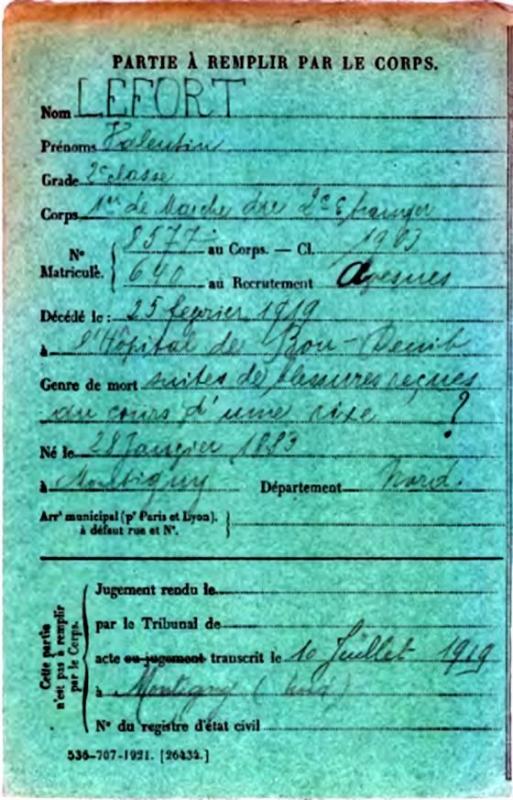 PARTIE À REMPLIR PAR LE CORPS.
Nom LEFORT
Prénoms Valentin
Grade 2e classe
Corps 1er de Marche du 2e Etranger
No Matricule. { 8577 au Corps. — Cl. 1903
640 au Recrutement Avesnes
Décédé le : 25 février 1919
à l'Hôpital de Bou-Denib
Genre de mort suites de blessures reçues
au cours d'une rixe ?
Né le 28 Janvier 1883
à Montigny Département Nord.
Arrt municipal (pr Paris et Lyon), à défaut rue et No. }
Cette partie n'est pas à remplir par le Corps. {
Jugement rendu le
par le Tribunal de
acte ou jugement transcrit le 10 Juillet 1919
à Montigny (Nord)
No du registre d'état civil
536-707-1921. [26434.]